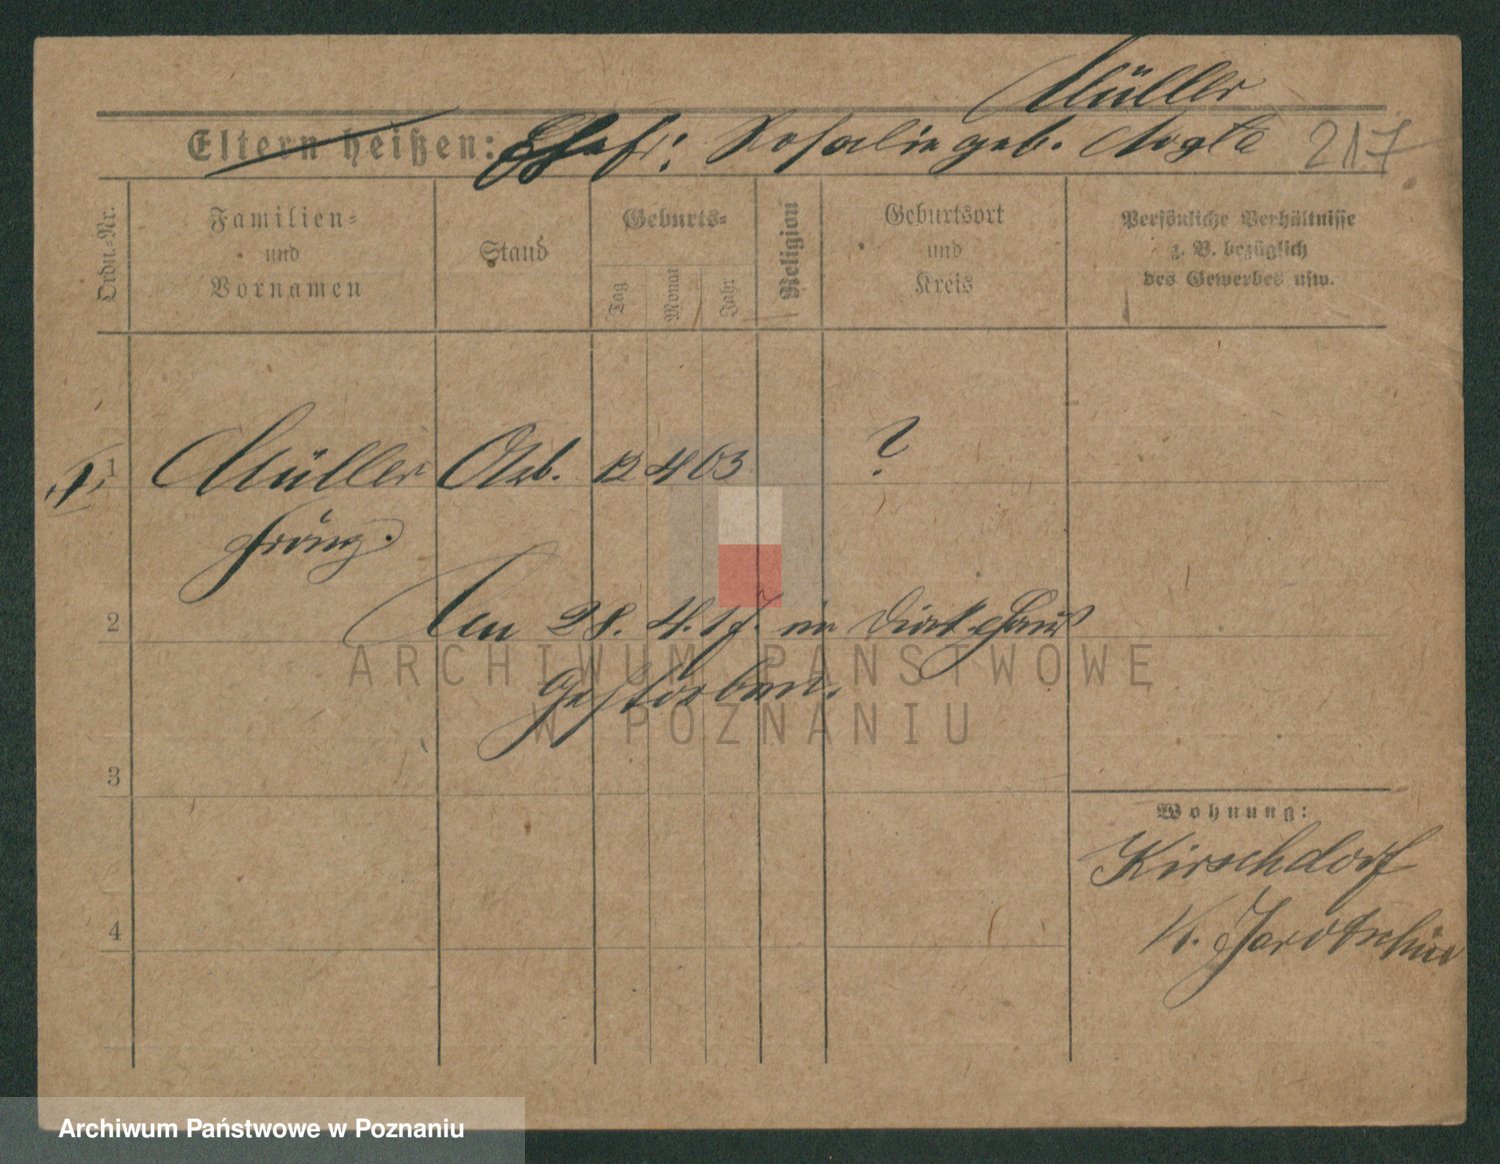 Müller
Eltern heißen: Ehefr: Rosalie geb. Nogla 217
Ordn.-Nr.
Familien-
und
Vornamen
Stand
Geburts-
Tag
Monat
Jahr
Religion
Geburtsort
und
Kreis
Persönliche Verhältnisse
z. B. bezüglich
des Gewerbes usw.
1 Müller Arb. 12 4 63 ?
Franz.
2 Am 28. 4. 17. im Diak. Haus
gestorben.
3
4
Wohnung:
Kirschdorf
K. Jarotschin
ARCHIWUM PAŃSTWOWE
W POZNANIU
Archiwum Państwowe w Poznaniu